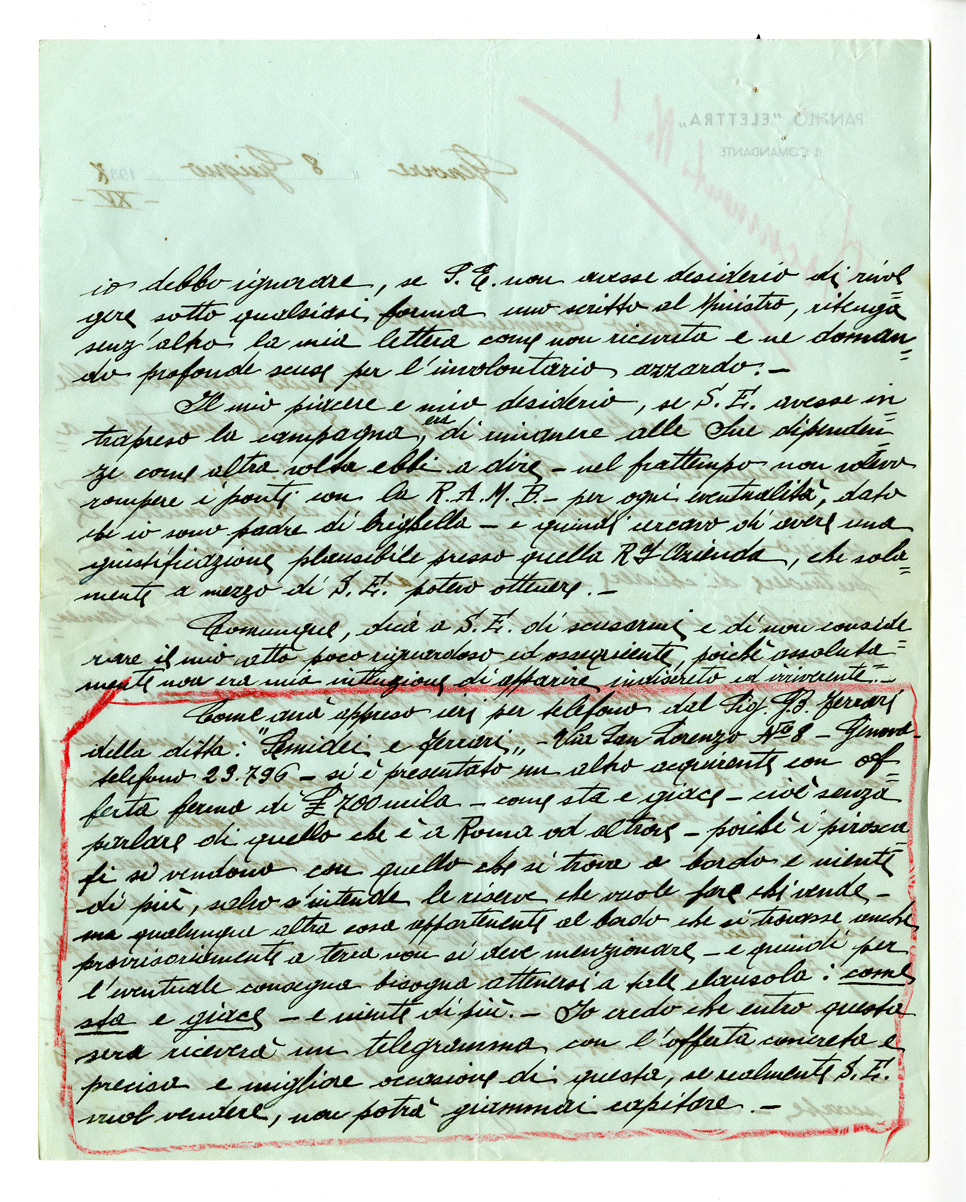 io debbo ignorare, se S. E. non avesse desiderio di rivol=
gere sotto qualsiasi forma uno scritto al Ministro, ritenga
senz'altro la mia lettera come non ricevuta e ne doman=
do profonde scuse per l'involontario azzardo. —
Il mio piacere e mio desiderio, se S. E. avesse in=
trapreso la campagna, era di rimanere alle Sue dipenden=
ze come altra volta ebbi a dire – nel frattempo non volevo
rompere i ponti con la R.A.M.B. – per ogni eventualità, dato
che io sono padre di famiglia – e quindi cercavo di avere una
giustificazione plausibile presso quella Azienda, che sola=
mente a mezzo di S. E. potevo ottenere. —
Comunque, dica a S. E. di scusarmi e di non conside=
rare il mio atto poco riguardoso ed ossequiente, poichè assoluta=
mente non era mia intenzione di apparire indiscreto ed irriverente. —
Come avrà appreso ieri per telefono dal Sig. GB. Ferrari
della ditta: "Semidei e Ferrari" – Via San Lorenzo No 8 – Genova
telefono 23.796 – si è presentato un altro acquirente con of=
ferta ferma di £ 700 mila – come sta e giace – cioè senza
parlare di quello che è a Roma od altrove – poichè i pirosca
fi si vendono con quello che si trova a bordo e niente
di più, salvo s'intende le riserve che vuole fare chi vende –
ma qualunque altra cosa appartenente al bordo che si trovasse anche
provvisoriamente a terra non si deve menzionare – e quindi per
l'eventuale consegna bisogna attenersi a tale clausola: come
sta e giace – e niente di più. – Io credo che entro questa
sera riceverà un telegramma con l'offerta concreta e
precisa e migliore occasione di questa, se realmente S. E.
vuol vendere, non potrà giammai capitare. —